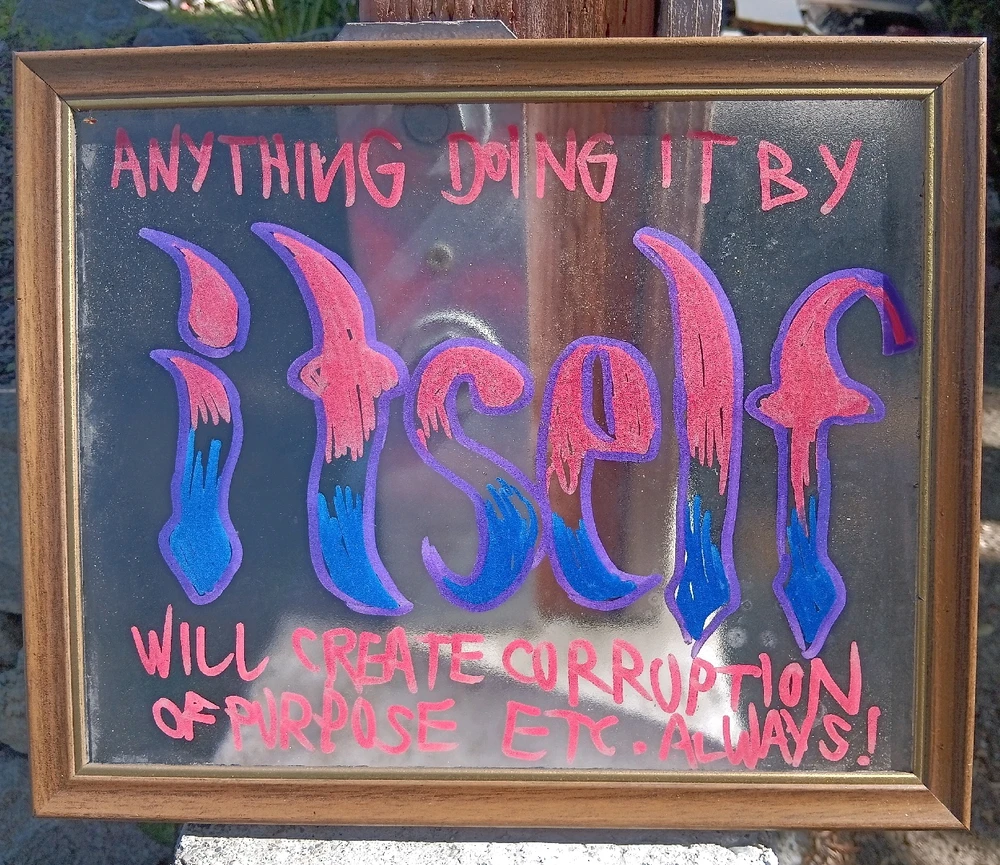 ANYTHING DOING IT BY
itself
WILL CREATE CORRUPTION
OF PURPOSE ETC. ALWAYS!